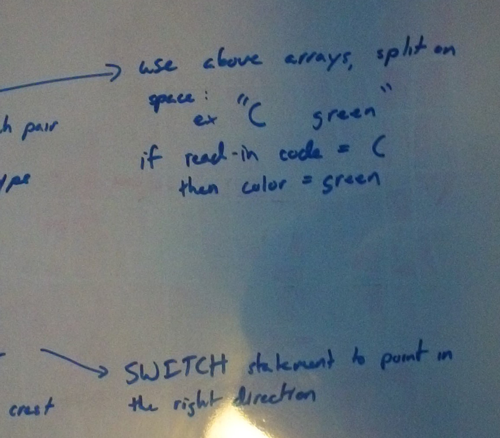 use above arrays, split on
space:
ex "C green"
pair
if read-in code = C
then color = green
SWITCH statement to point in
the right direction
crest